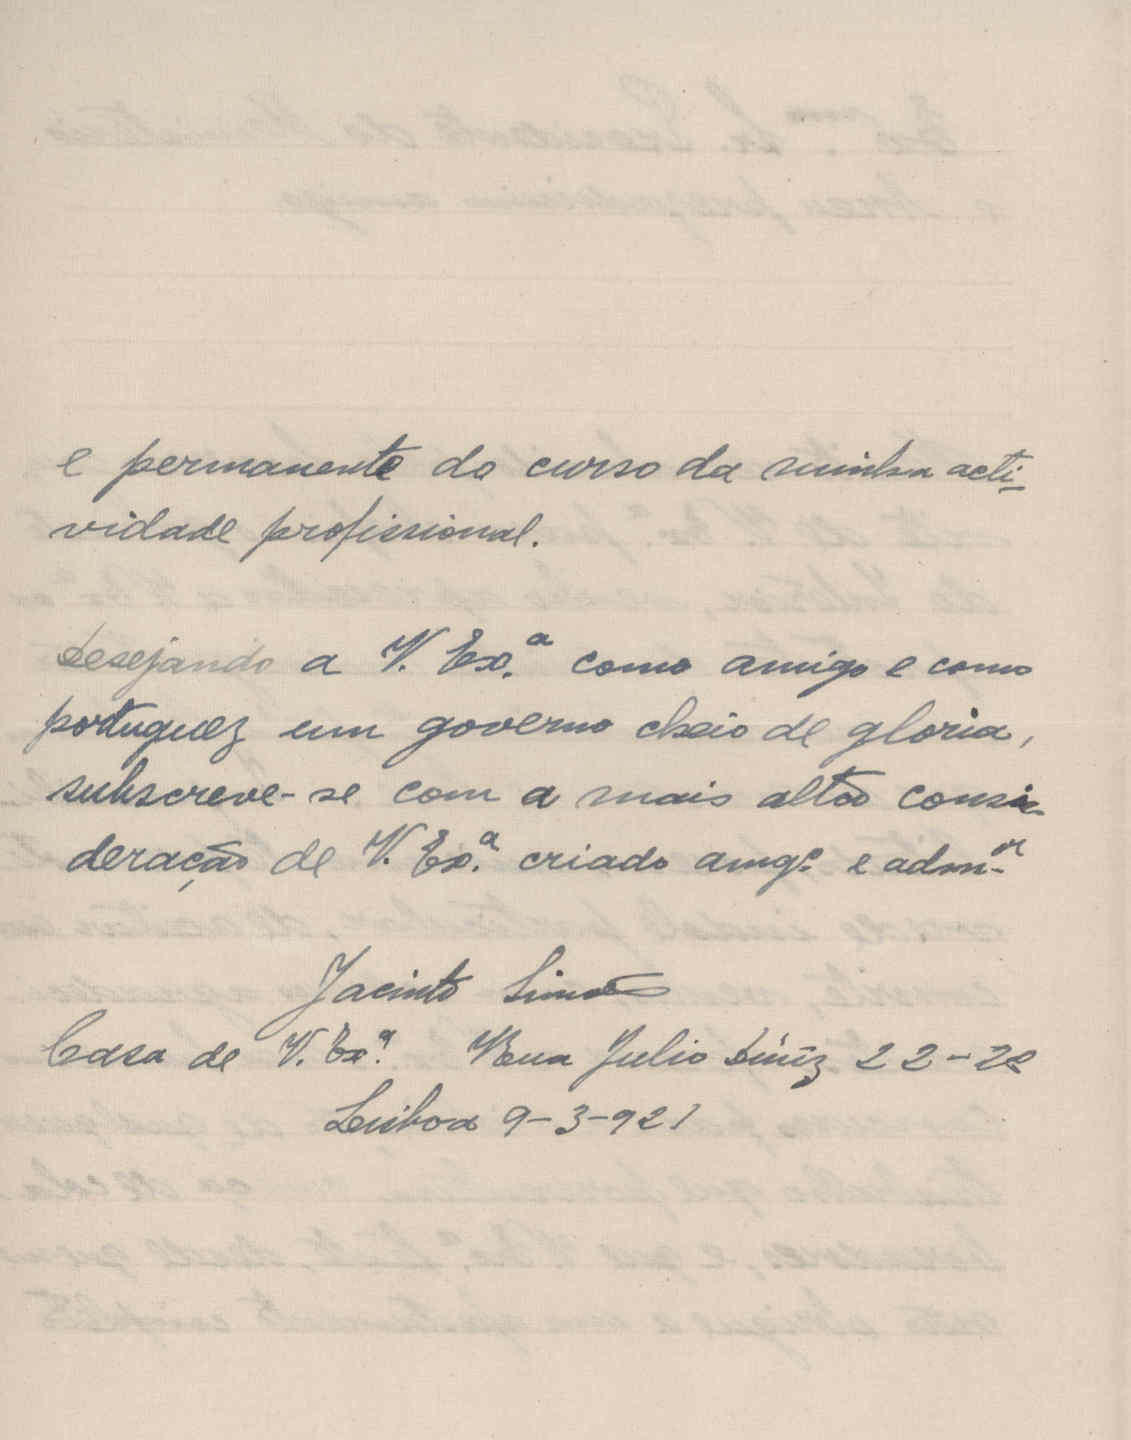 e permanente do curso da minha acti-
vidade profissional.
Desejando a V. Ex.ª como amigo e como
portuguez um governo cheio de gloria,
subscreve-se com a mais alta consi-
deração de V. Ex.ª criado amg.º e adm.ºʳ
Jacinto Simões
Casa de V. Ex.ª Rua Julio Diniz 22-2º
Lisboa 9-3-921